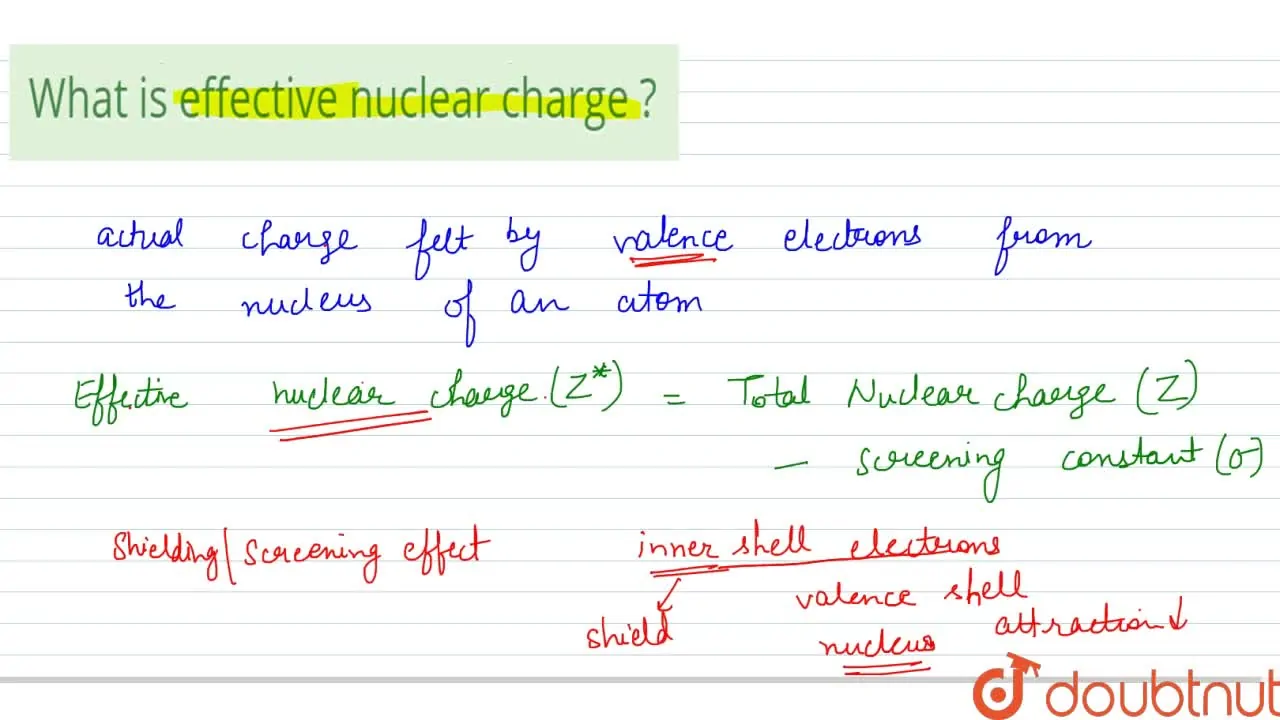 What is effective nuclear charge ?
actual charge felt by valence electrons from
the nucleus of an atom
Effective nuclear charge. (Z*) = Total Nuclear charge (Z)
— screening constant (σ)
Shielding/screening effect inner shell electrons
valence shell
shield attraction↓
nucleus
doubtnut